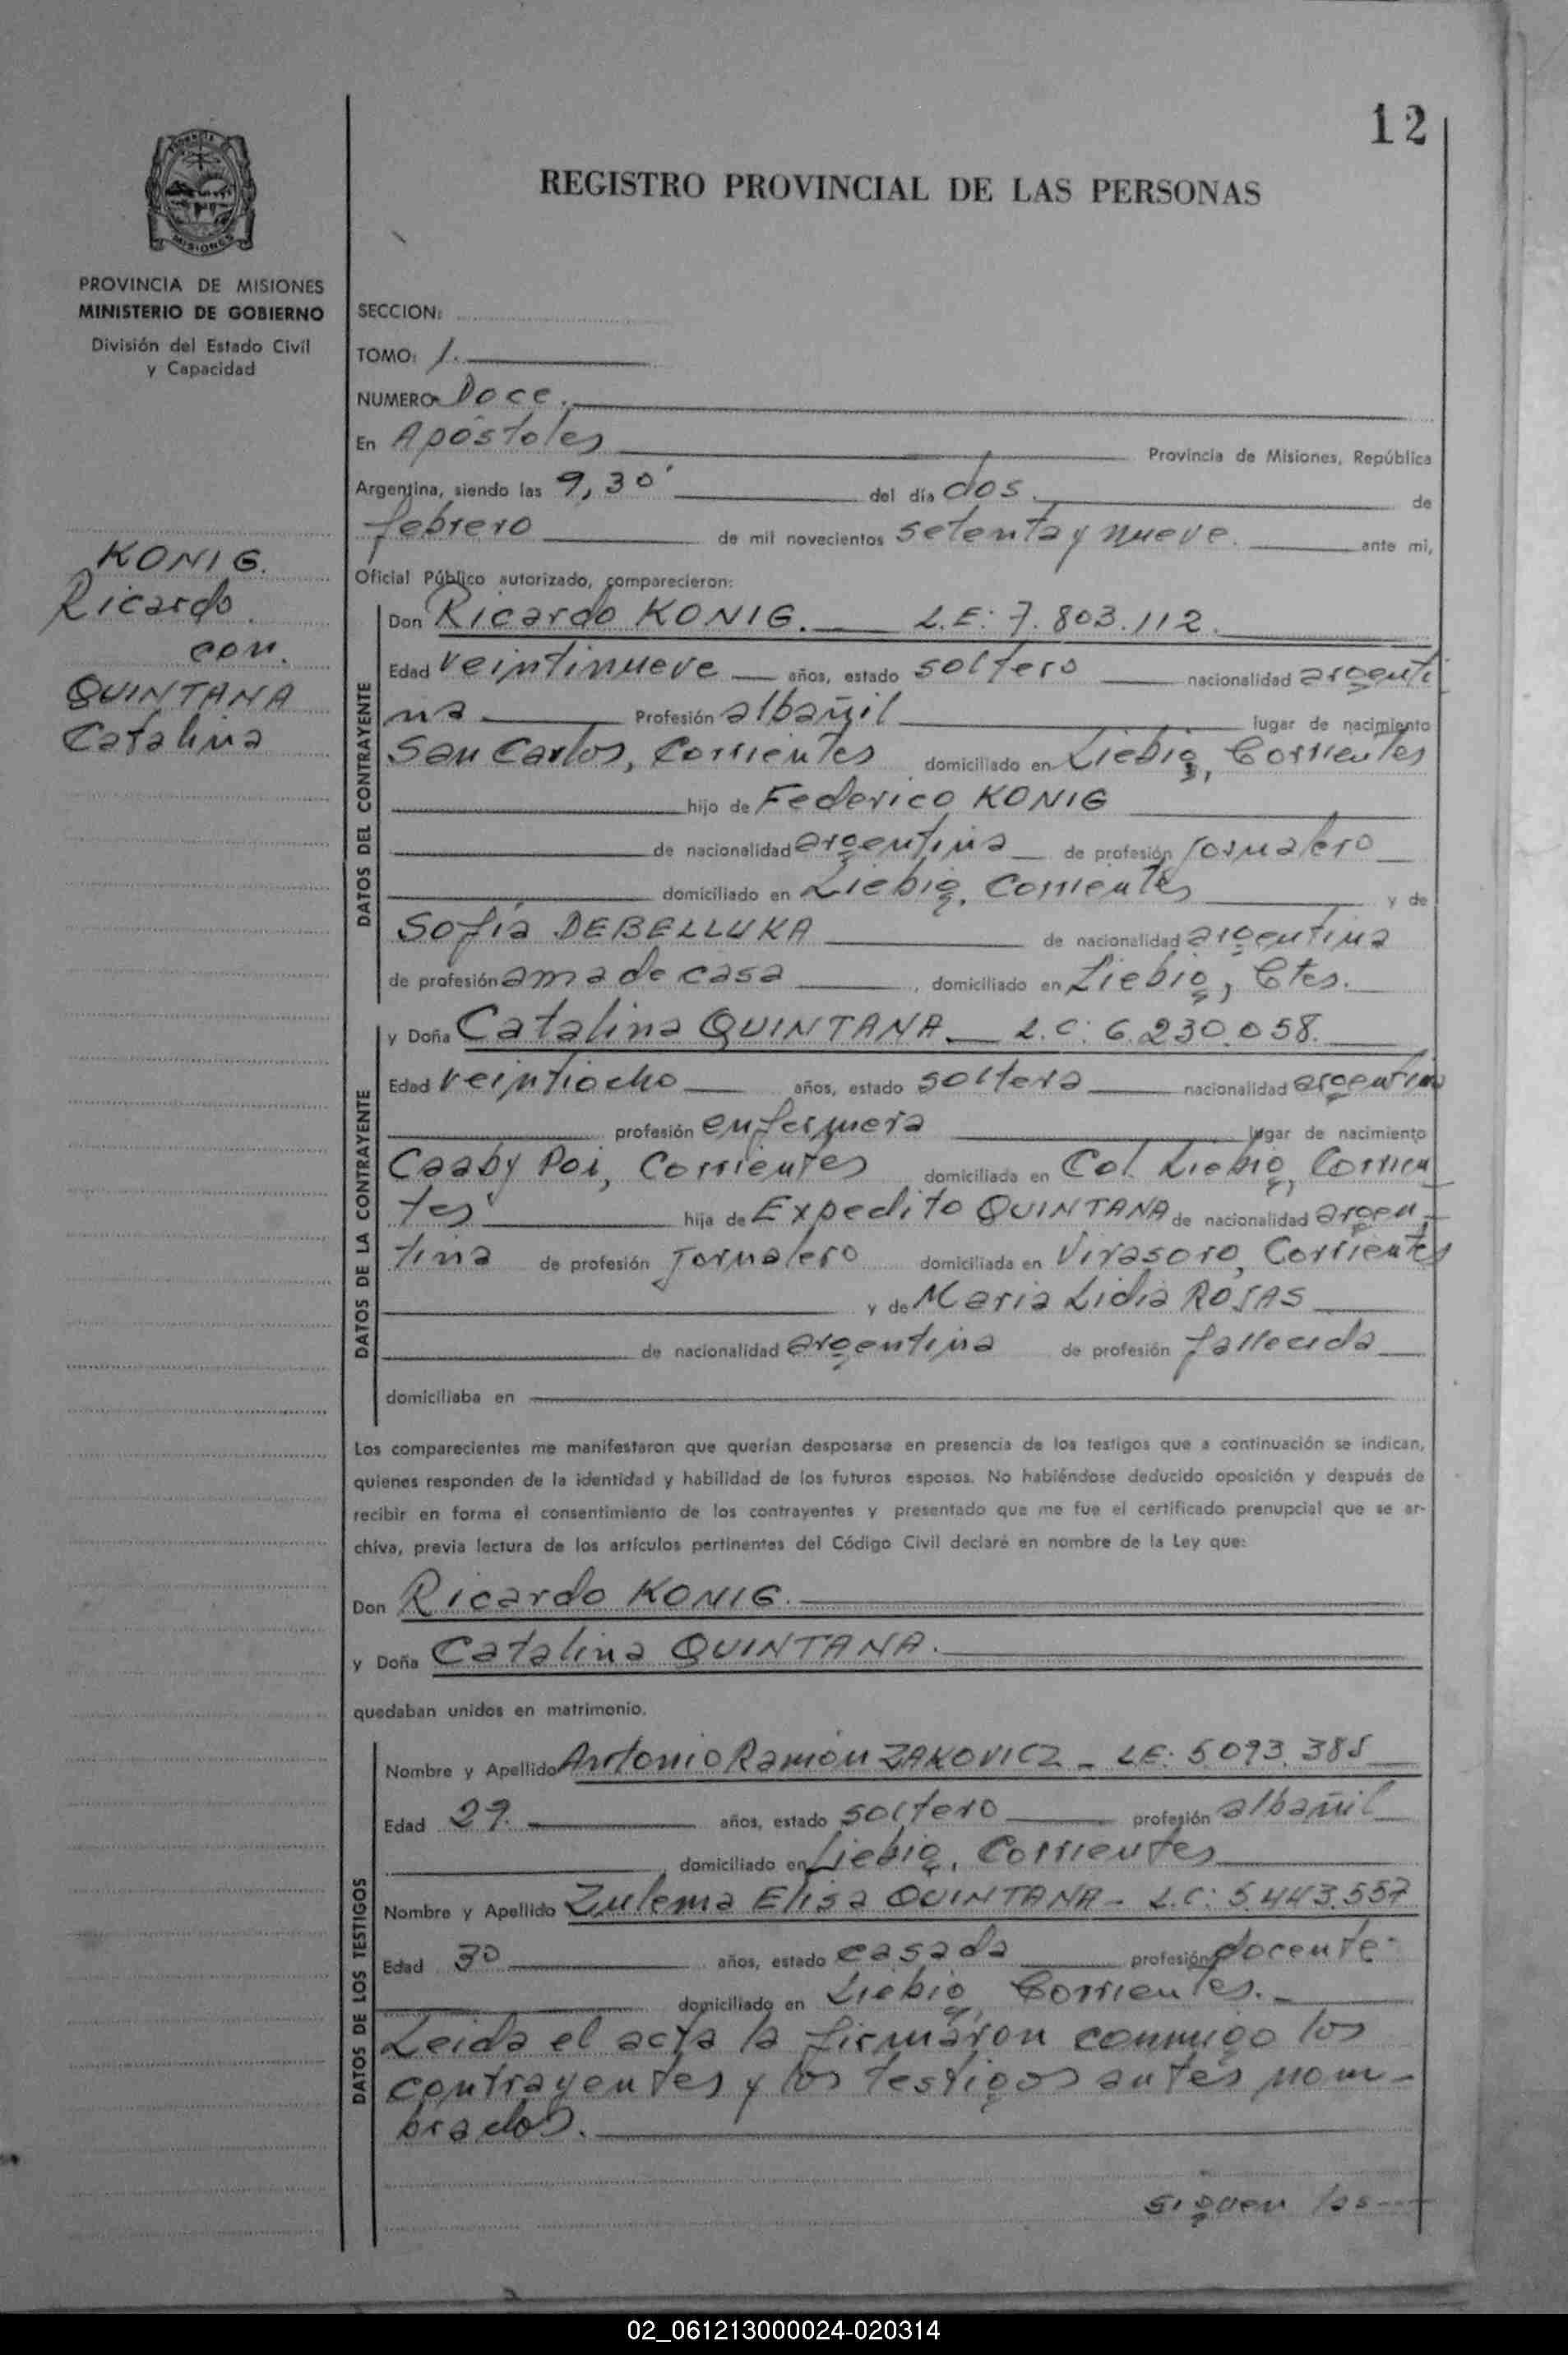 12
REGISTRO PROVINCIAL DE LAS PERSONAS
PROVINCIA DE MISIONES
MINISTERIO DE GOBIERNO
División del Estado Civil
y Capacidad
KONIG.
Ricardo
con.
QUINTANA
Catalina
SECCION:
TOMO: 1.
NUMERO Doce.
En Apóstoles Provincia de Misiones, República
Argentina, siendo las 9,30' del día dos de
febrero de mil novecientos setenta y nueve. ante mi,
Oficial Público autorizado, comparecieron:
DATOS DEL CONTRAYENTE
Don Ricardo KONIG. L.E: 7.803.112.
Edad veintinueve años, estado soltero nacionalidad argenti
na Profesión albañil lugar de nacimiento
San Carlos, Corrientes domiciliado en Liebig, Corrientes
hijo de Federico KONIG
de nacionalidad argentina de profesión jornalero
domiciliado en Liebig, Corrientes y de
Sofía DEBELLUKA de nacionalidad argentina
de profesión ama de casa, domiciliado en Liebig, Ctes.
DATOS DE LA CONTRAYENTE
y Doña Catalina QUINTANA. L.C: 6.230.058.
Edad veintiocho años, estado soltera nacionalidad argentina
profesión enfermera lugar de nacimiento
Caaby Poi, Corrientes domiciliada en Col. Liebig, Corrien
tes hija de Expedito QUINTANA de nacionalidad argen-
tina de profesión Jornalero domiciliada en Virasoro, Corrientes
y de Maria Lidia ROJAS
de nacionalidad argentina de profesión fallecida
domiciliaba en
Los comparecientes me manifestaron que querían desposarse en presencia de los testigos que a continuación se indican,
quienes responden de la identidad y habilidad de los futuros esposos. No habiéndose deducido oposición y después de
recibir en forma el consentimiento de los contrayentes y presentado que me fue el certificado prenupcial que se ar-
chiva, previa lectura de los artículos pertinentes del Código Civil declaré en nombre de la Ley que:
Don Ricardo KONIG.
y Doña Catalina QUINTANA.
quedaban unidos en matrimonio.
DATOS DE LOS TESTIGOS
Nombre y Apellido Antonio Ramón ZAKOVICZ - LE: 5.093.385
Edad 29. años, estado soltero profesión albañil
domiciliado en Liebig, Corrientes
Nombre y Apellido Zulema Elisa QUINTANA - L.C: 5.443.557
Edad 30 años, estado casada profesión docente-
domiciliado en Liebig, Corrientes.-
Leida el acta la firmaron conmigo los
contrayentes y los testigos antes nom-
brados.
siguen las---
02_061213000024-020314